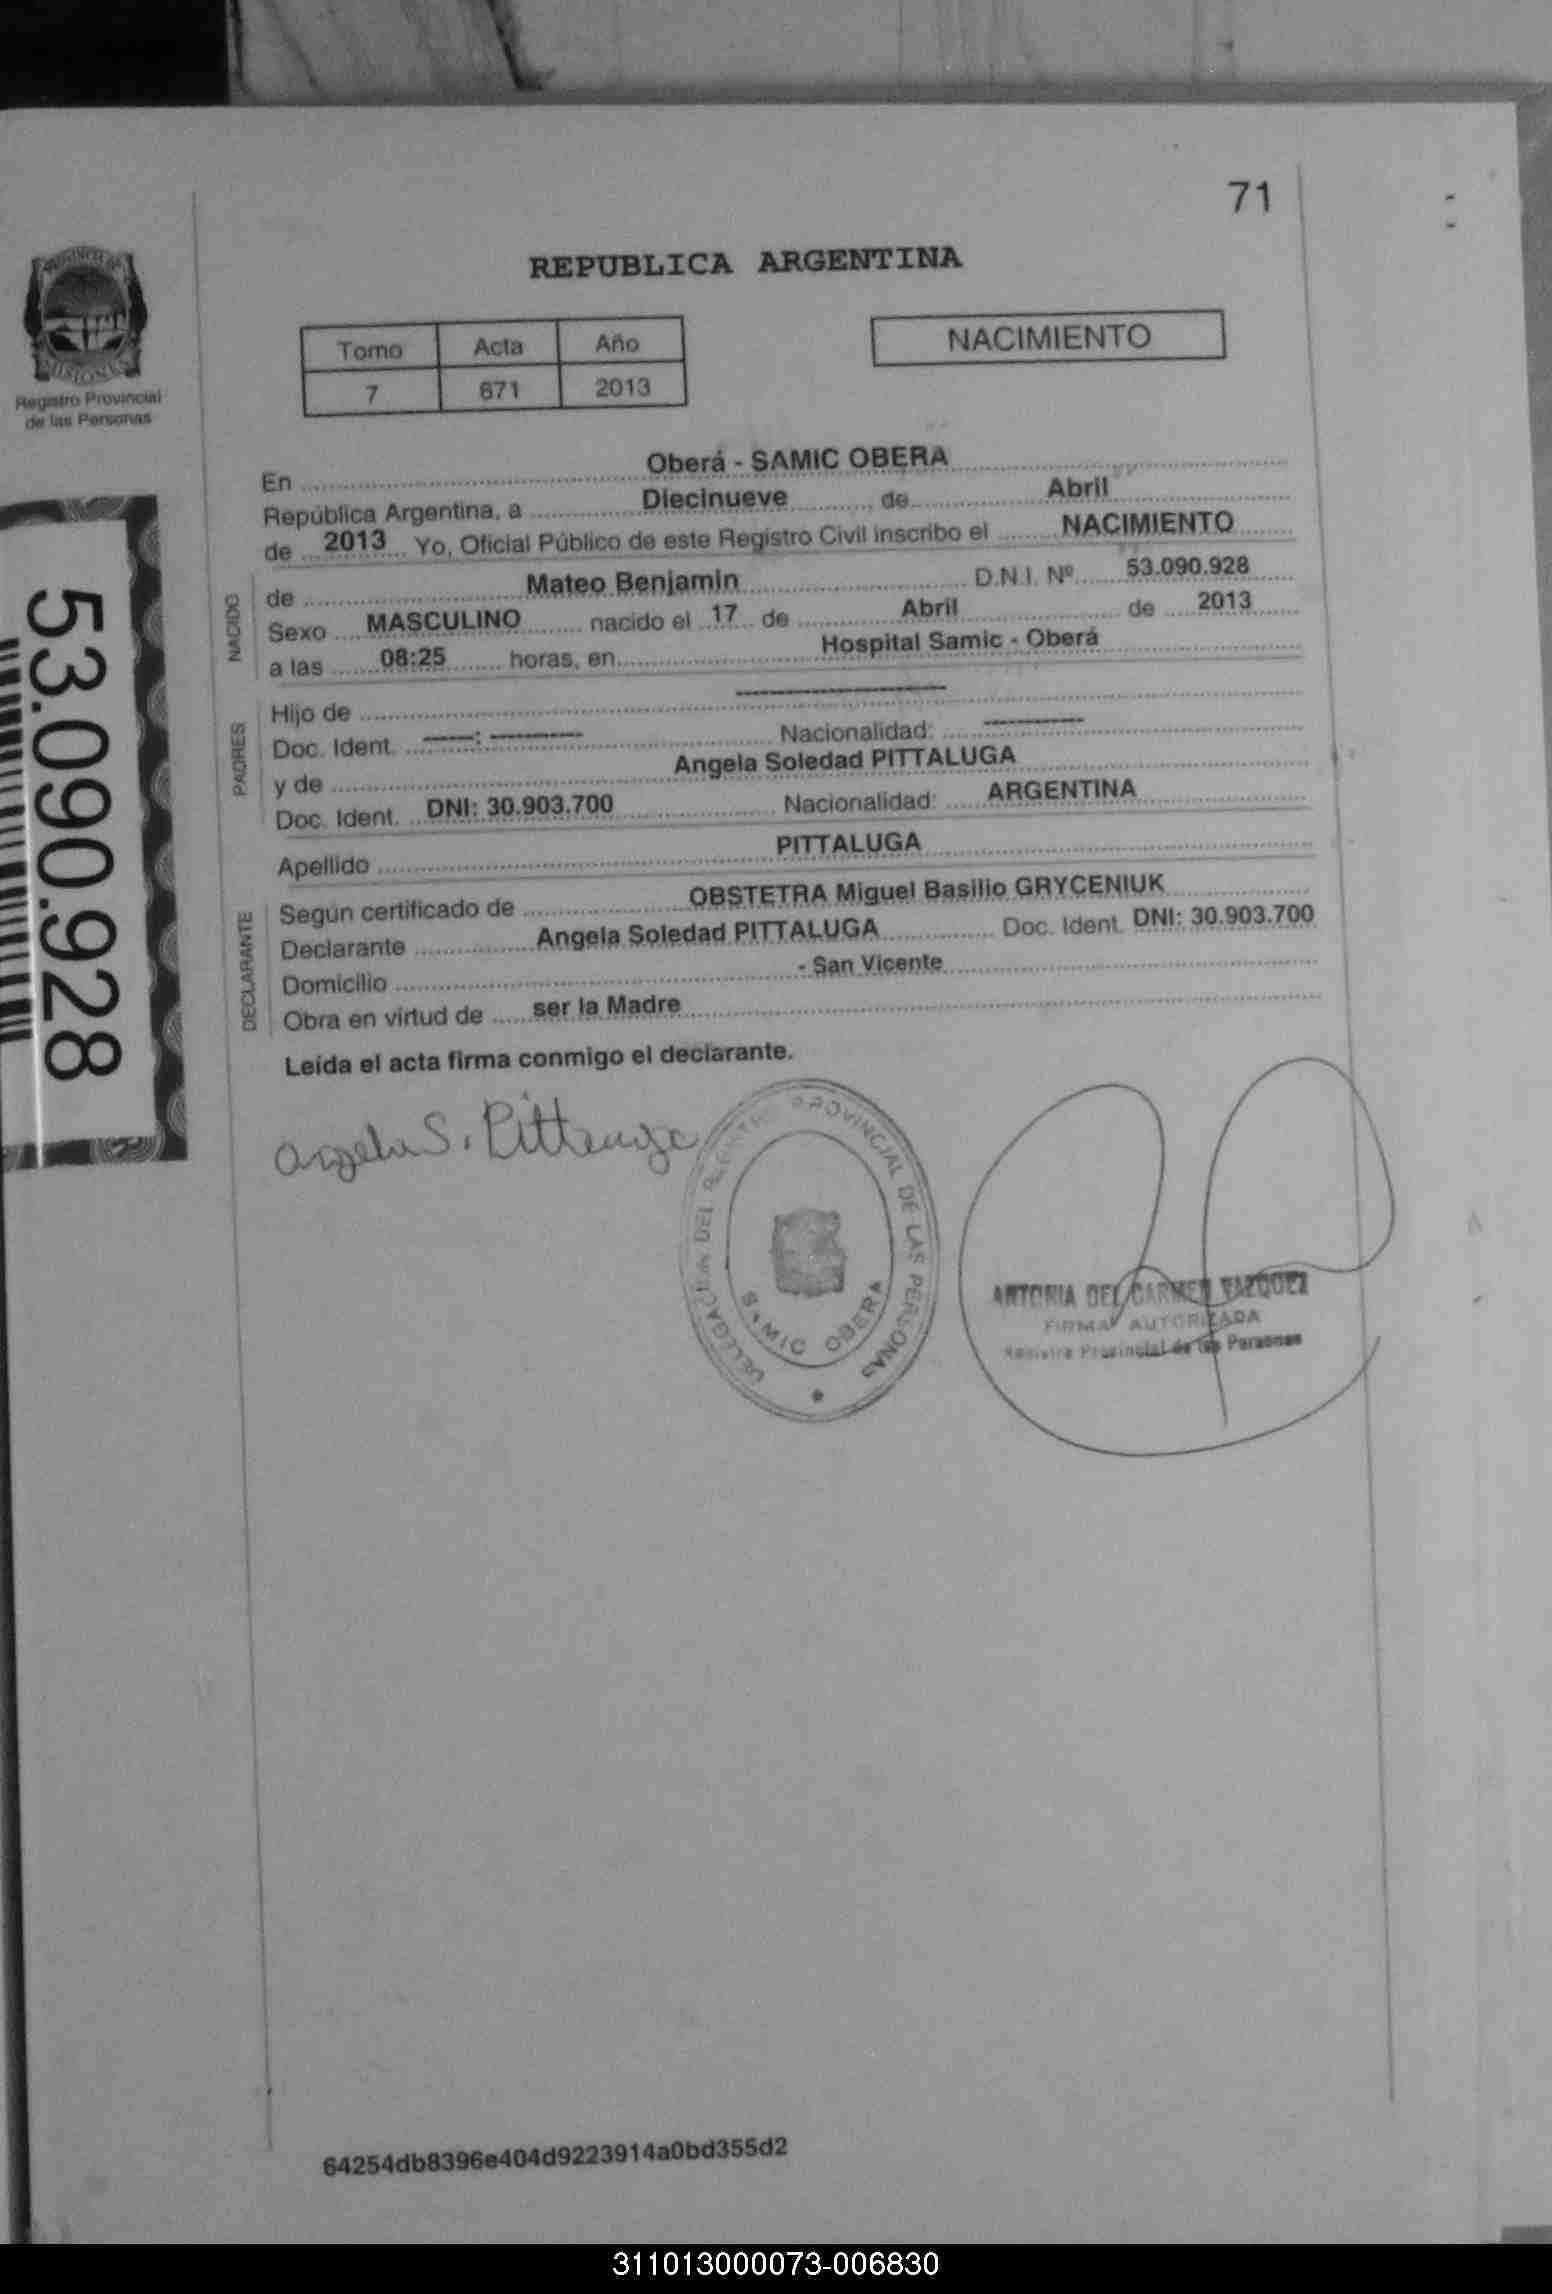 71
PROVINCIA DE
MISIONES
Registro Provincial
de las Personas
REPUBLICA ARGENTINA
Tomo Acta Año
7 671 2013
NACIMIENTO
53.090.928
En Oberá - SAMIC OBERA
República Argentina, a Diecinueve de Abril
de 2013 Yo, Oficial Público de este Registro Civil inscribo el NACIMIENTO
NACIDO
de Mateo Benjamin D.N.I. Nº 53.090.928
Sexo MASCULINO nacido el 17 de Abril de 2013
a las 08:25 horas, en Hospital Samic - Oberá
PADRES
Hijo de --------------------
Doc. Ident. -----: --------- Nacionalidad: ----------
y de Angela Soledad PITTALUGA
Doc. Ident. DNI: 30.903.700 Nacionalidad: ARGENTINA
Apellido PITTALUGA
DECLARANTE
Según certificado de OBSTETRA Miguel Basilio GRYCENIUK
Declarante Angela Soledad PITTALUGA Doc. Ident. DNI: 30.903.700
Domicilio - San Vicente
Obra en virtud de ser la Madre
Leída el acta firma conmigo el declarante.
Angela S.
DELEGACION DEL REGISTRO PROVINCIAL DE LAS PERSONAS
SAMIC OBERA
ANTONIA DEL CARMEN VAZQUEZ
FIRMA AUTORIZADA
Registro Provincial de las Personas
64254db8396e404d9223914a0bd355d2
311013000073-006830